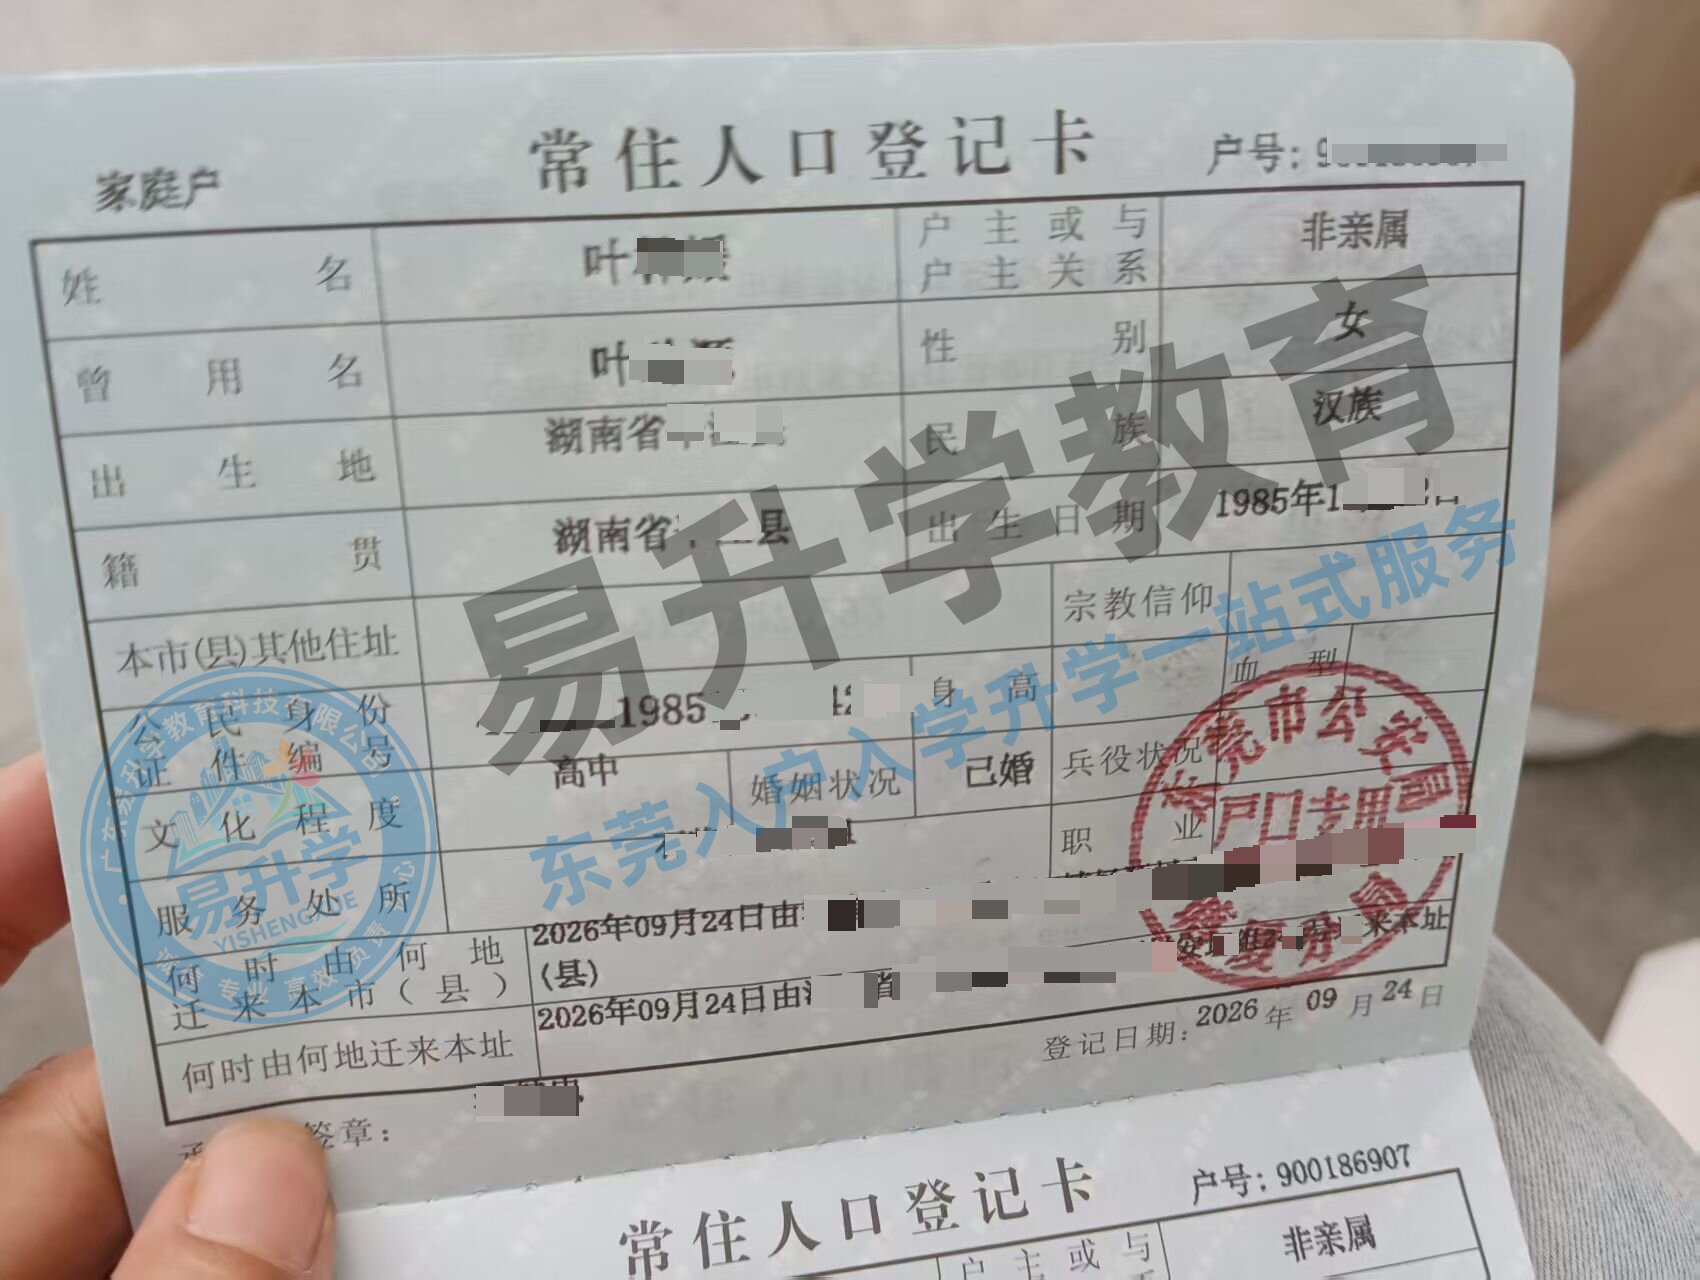 常住人口登记卡
家庭户
户号：9
姓名 叶
户主或与户主关系 非亲属
曾用名 叶
性别 女
出生地 湖南省
民族 汉族
籍贯 湖南省 县
出生日期 1985年1
本市(县)其他住址
宗教信仰
公民身份证件编号 1985
身高
血型
文化程度 高中
婚姻状况 已婚
兵役状况
服务处所
职业
何时由何地迁来本市(县)
2026年09月24日由
(县)
何时由何地迁来本址
2026年09月24日由 省 来本址
登记日期：2026年09月24日
签章：
市公安局
户口专用
分局
易升学教育
东莞入户入学升学一站式服务
易升学教育科技有限公司
易升学
YISHENGXUE
专业 高效 负责
常住人口登记卡
户号：900186907
户主或与
非亲属